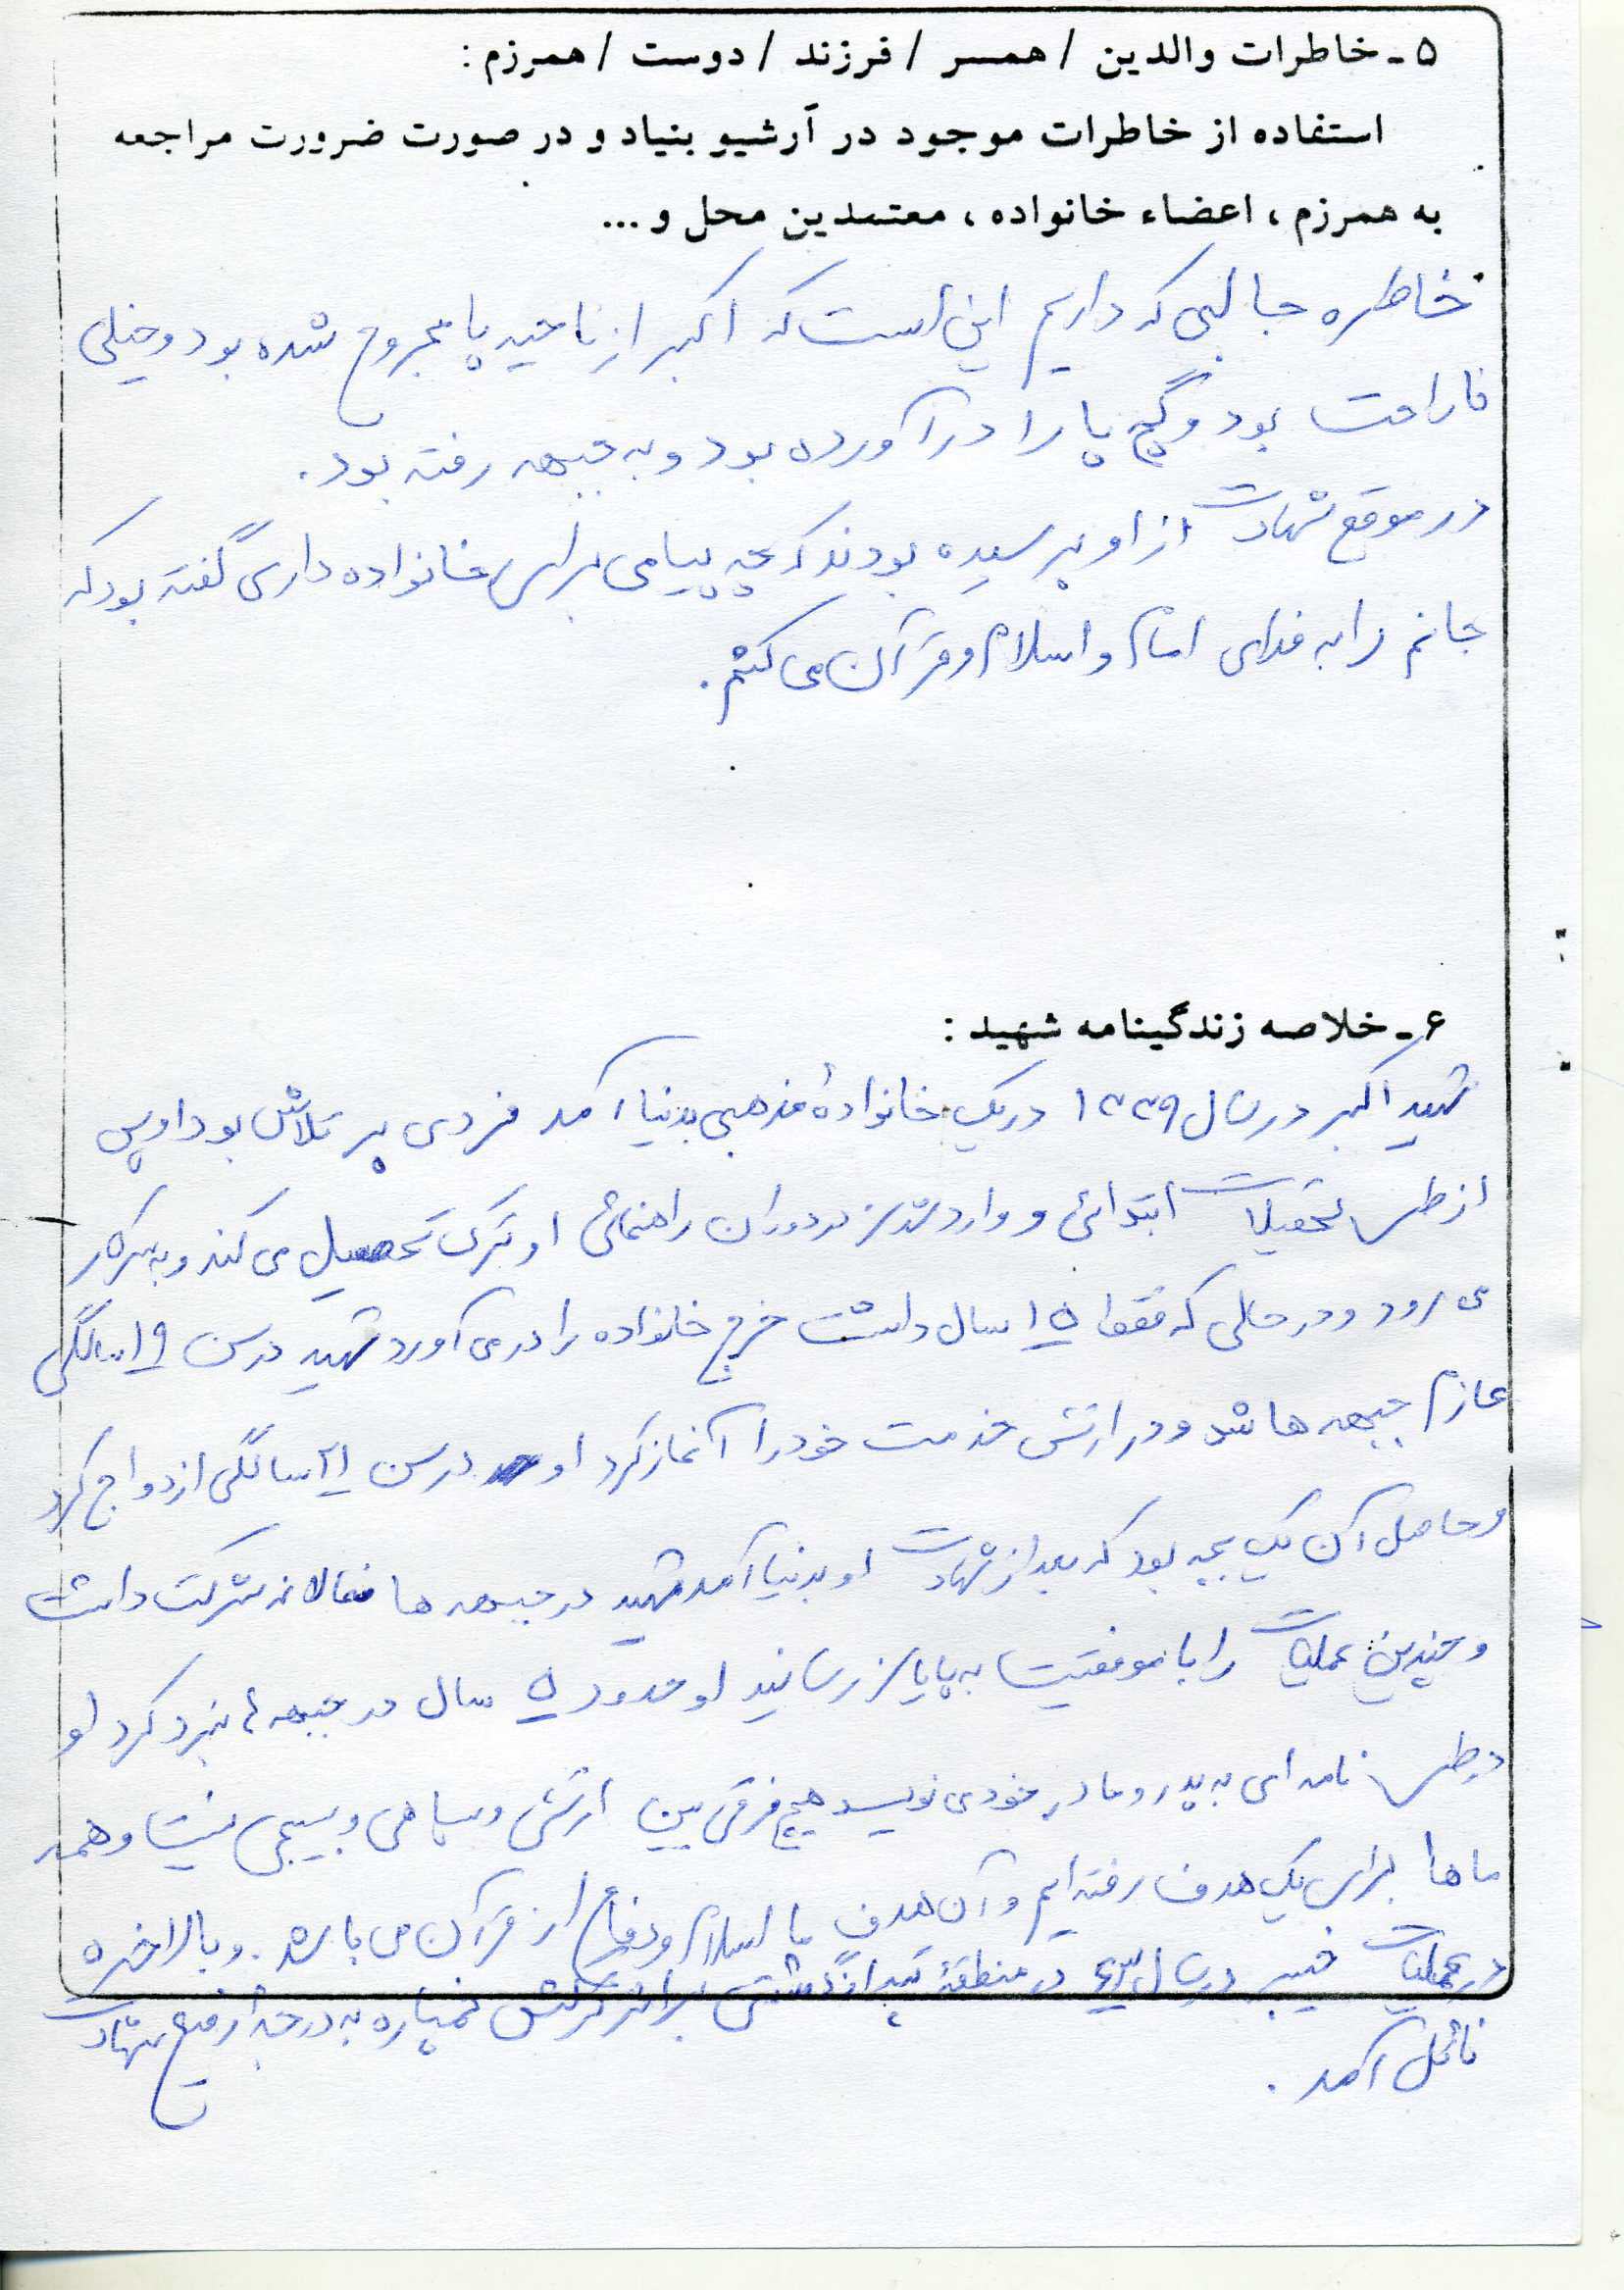 ۵ - خاطرات والدین / همسر / فرزند / دوست / همرزم :
استفاده از خاطرات موجود در آرشیو بنیاد و در صورت ضرورت مراجعه
به همرزم ، اعضاء خانواده ، معتمدین محل و ...
خاطره جالبی که داریم این است که اکبر از ناحیه پا مجروح شده بود و خیلی
ناراحت بود و گچ پا را درآورده بود و به جبهه رفته بود .
در موقع شهادت از او پرسیده بودند که چه پیامی برای خانواده داری گفته بود که
جانم را به فدای امام و اسلام و قرآن می کنم .
۶ - خلاصه زندگینامه شهید :
شهید اکبر در سال ۱۳۳۹ در یک خانوادهٔ مذهبی بدنیا آمد فردی پر تلاش بود او پس
از طی تحصیلات ابتدائی و وارد شدن در دوران راهنمائی او ترک تحصیل می کند و به سرکار
می رود و در حالی که فقط ۱۵ سال داشت خرج خانواده را در می آورد شهید در سن ۱۹ سالگی
عازم جبهه ها شد و در ارتش خدمت خود را آغاز کرد او در سن ۲۱ سالگی ازدواج کرد
و حاصل آن یک بچه بود که بعد از شهادت او بدنیا آمد شهید در جبهه ها فعالانه شرکت داشت
و چندین عملیات را با موفقیت به پایان رسانید او حدود ۵ سال در جبهه ها نبرد کرد او
در طی نامه ای به پدر و مادر خود می نویسد هیچ فرقی بین ارتشی و سپاهی و بسیجی نیست و همه
ما ها برای یک هدف رفته ایم و آن هدف ما اسلام و دفاع از قرآن می باشد . و بالاخره
در عملیات خیبر در سال ۶۳ در منطقهٔ بر اثر ترکش خمپاره به درجهٔ رفیع شهادت
نائل آمد .